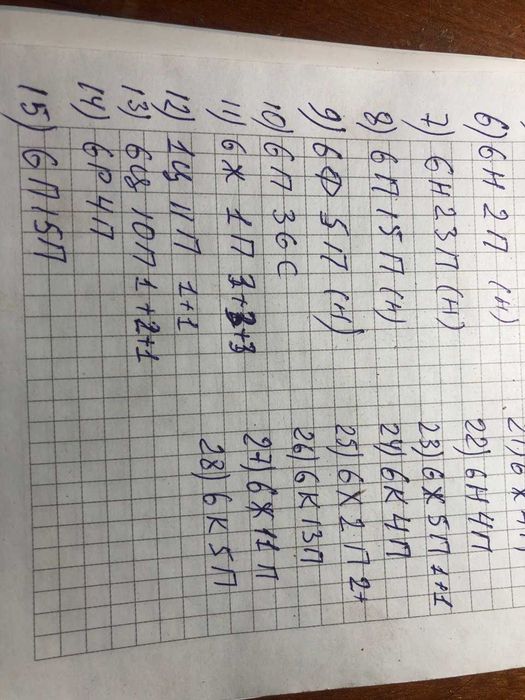 6) 6Н 2П (Н)
7) 6Н 23П (Н)
8) 6П 15П (Н)
9) 6Ф 5П (Н)
10) 6П 36С
11) 6Ж 1П
12) 1Ц 11П 1+1
13) 6Ц 10П 1+2+1
14) 6Р 4П
15) 6П 15П
22) 6Н 4П
23) 6Ж 5П 1+1
24) 6К 4П
25) 6Х 2П 2+
26) 6К 13П
27) 6Ж 11П
28) 6К 5П